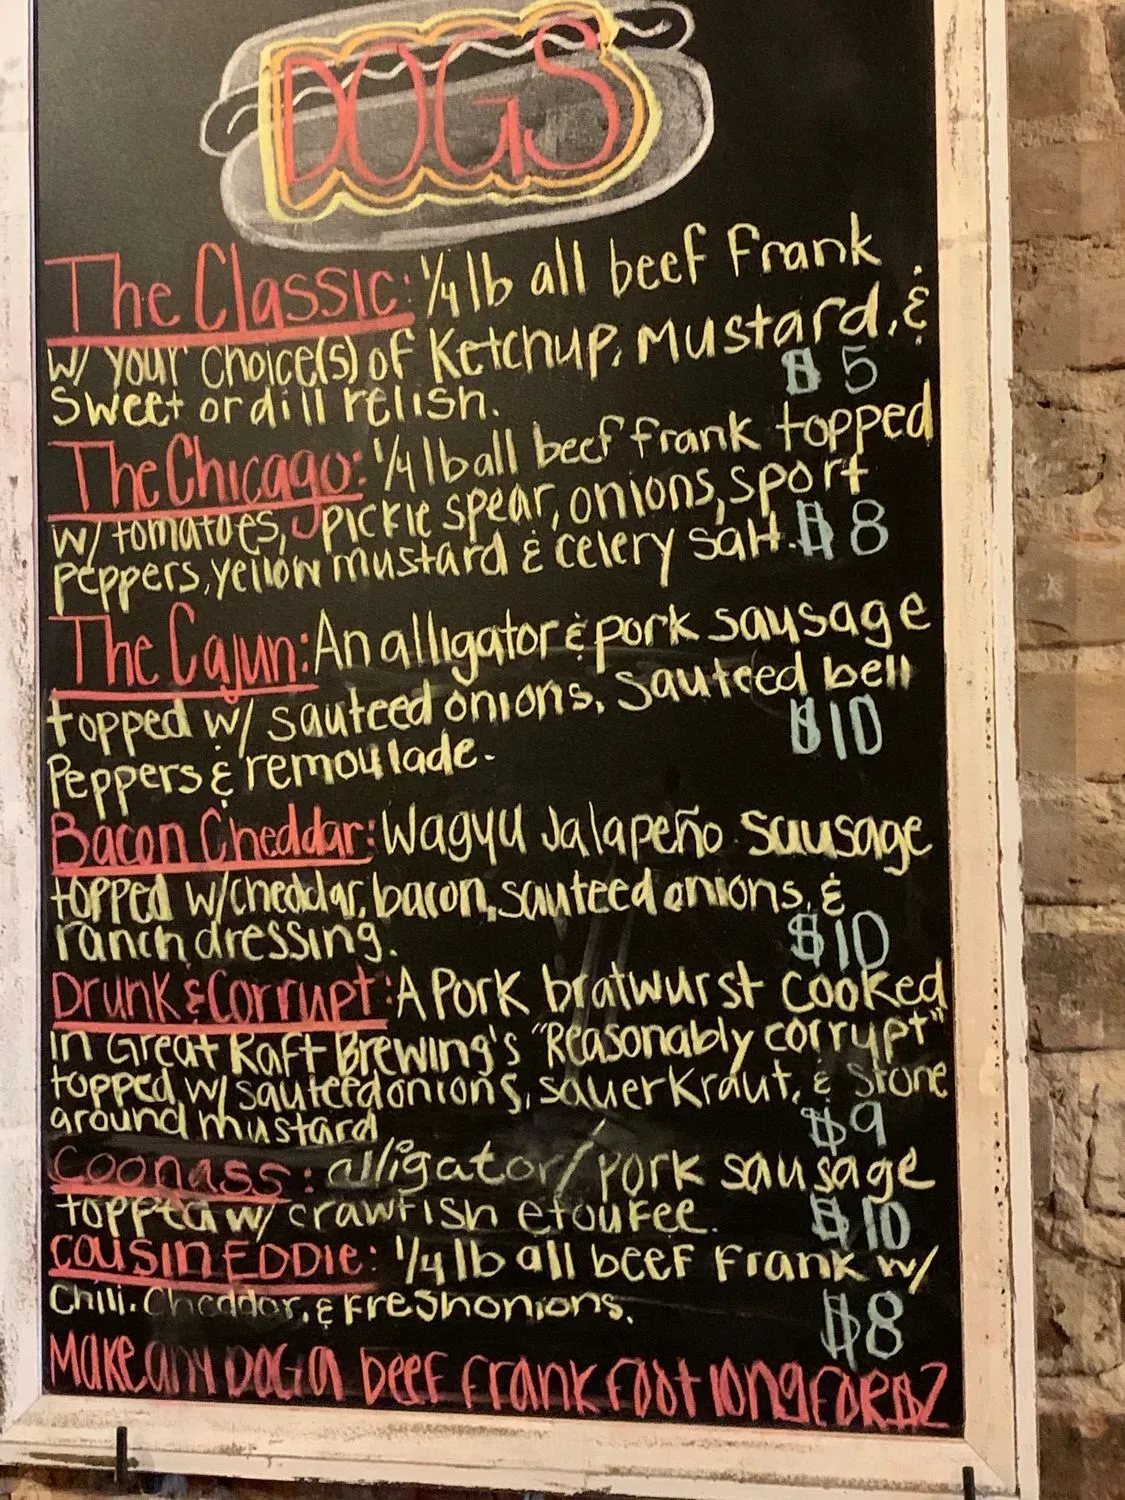 DOGS
The Classic: 1/4 lb all beef Frank
w/ your choice(s) of Ketchup, Mustard, &
Sweet or dill relish. $5
The Chicago: 1/4 lb all beef frank topped
w/ tomatoes, pickle spear, onions, sport
peppers, yellow mustard & celery salt. $8
The Cajun: An alligator & pork sausage
topped w/ sauteed onions, Sauteed bell
Peppers & remoulade. $10
Bacon Cheddar: Wagyu Jalapeño sausage
topped w/ cheddar, bacon, sauteed onions, &
ranch dressing. $10
Drunk & Corrupt: A Pork bratwurst cooked
in Great Raft Brewing's "Reasonably corrupt"
topped w/ sauteed onions, sauerkraut, & Stone
around mustard $9
Coonass: alligator/pork sausage
topped w/ crawfish etoufee. $10
Cousin EDDIE: 1/4 lb all beef Frank w/
Chili, Cheddar, & Fresh onions. $8
Make any DOG a beef frank foot long FOR $2